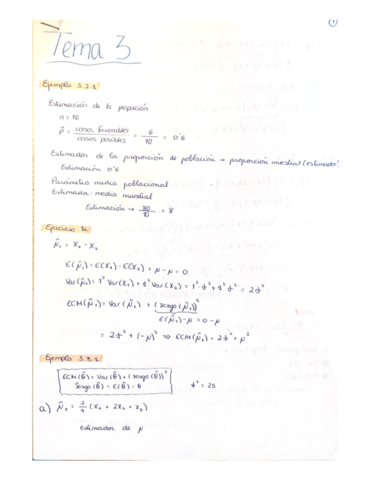 Tema 3
Ejemplo 3.2.1
Estimación de la proporción
n = 10
p̂ = casos favorables / casos posibles = 6/10 = 0'6
Estimador de la proporción de población → proporción muestral (estimador)
Estimación 0'6
Parámetro media poblacional
Estimada: media muestral
Estimación → 80/10 = 8
Ejercicio 7a
μ̂₁ = X₁ - X₂
E(μ̂₁) = E(X₁) - E(X₂) = μ - μ = 0
Var(μ̂₁) = 1² Var(X₁) + 1² Var(X₂) = 1²·σ² + 1²·σ² = 2σ²
ECM(μ̂₁) = Var(μ̂₁) + (sesgo(μ̂₁))²
E(μ̂₁) - μ = 0 - μ
= 2σ² + (-μ)² ⇒ ECM(μ̂₁) = 2σ² + μ²
Ejemplo 3.3.1
ECM(θ̂) = Var(θ̂) + (sesgo(θ̂))²
Sesgo(θ̂) = E(θ̂) - θ
σ² = 25
a) μ̂₁ = 1/4 (X₁ + 2X₂ + X₃)
estimador de μ